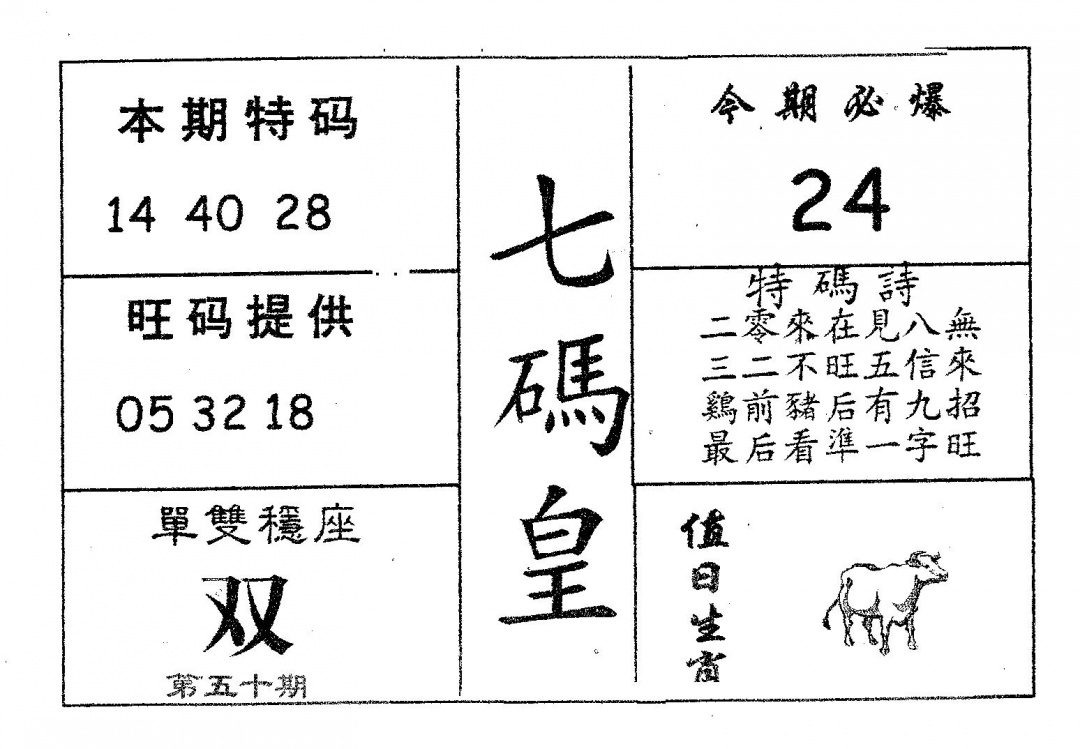 本期特码
14 40 28
旺码提供
05 32 18
單雙穩座
双
第五十期
七碼皇
今期必爆
24
特碼詩
二零來在見八無
三二不旺五信來
鷄前豬后有九招
最后看準一字旺
值日生肖